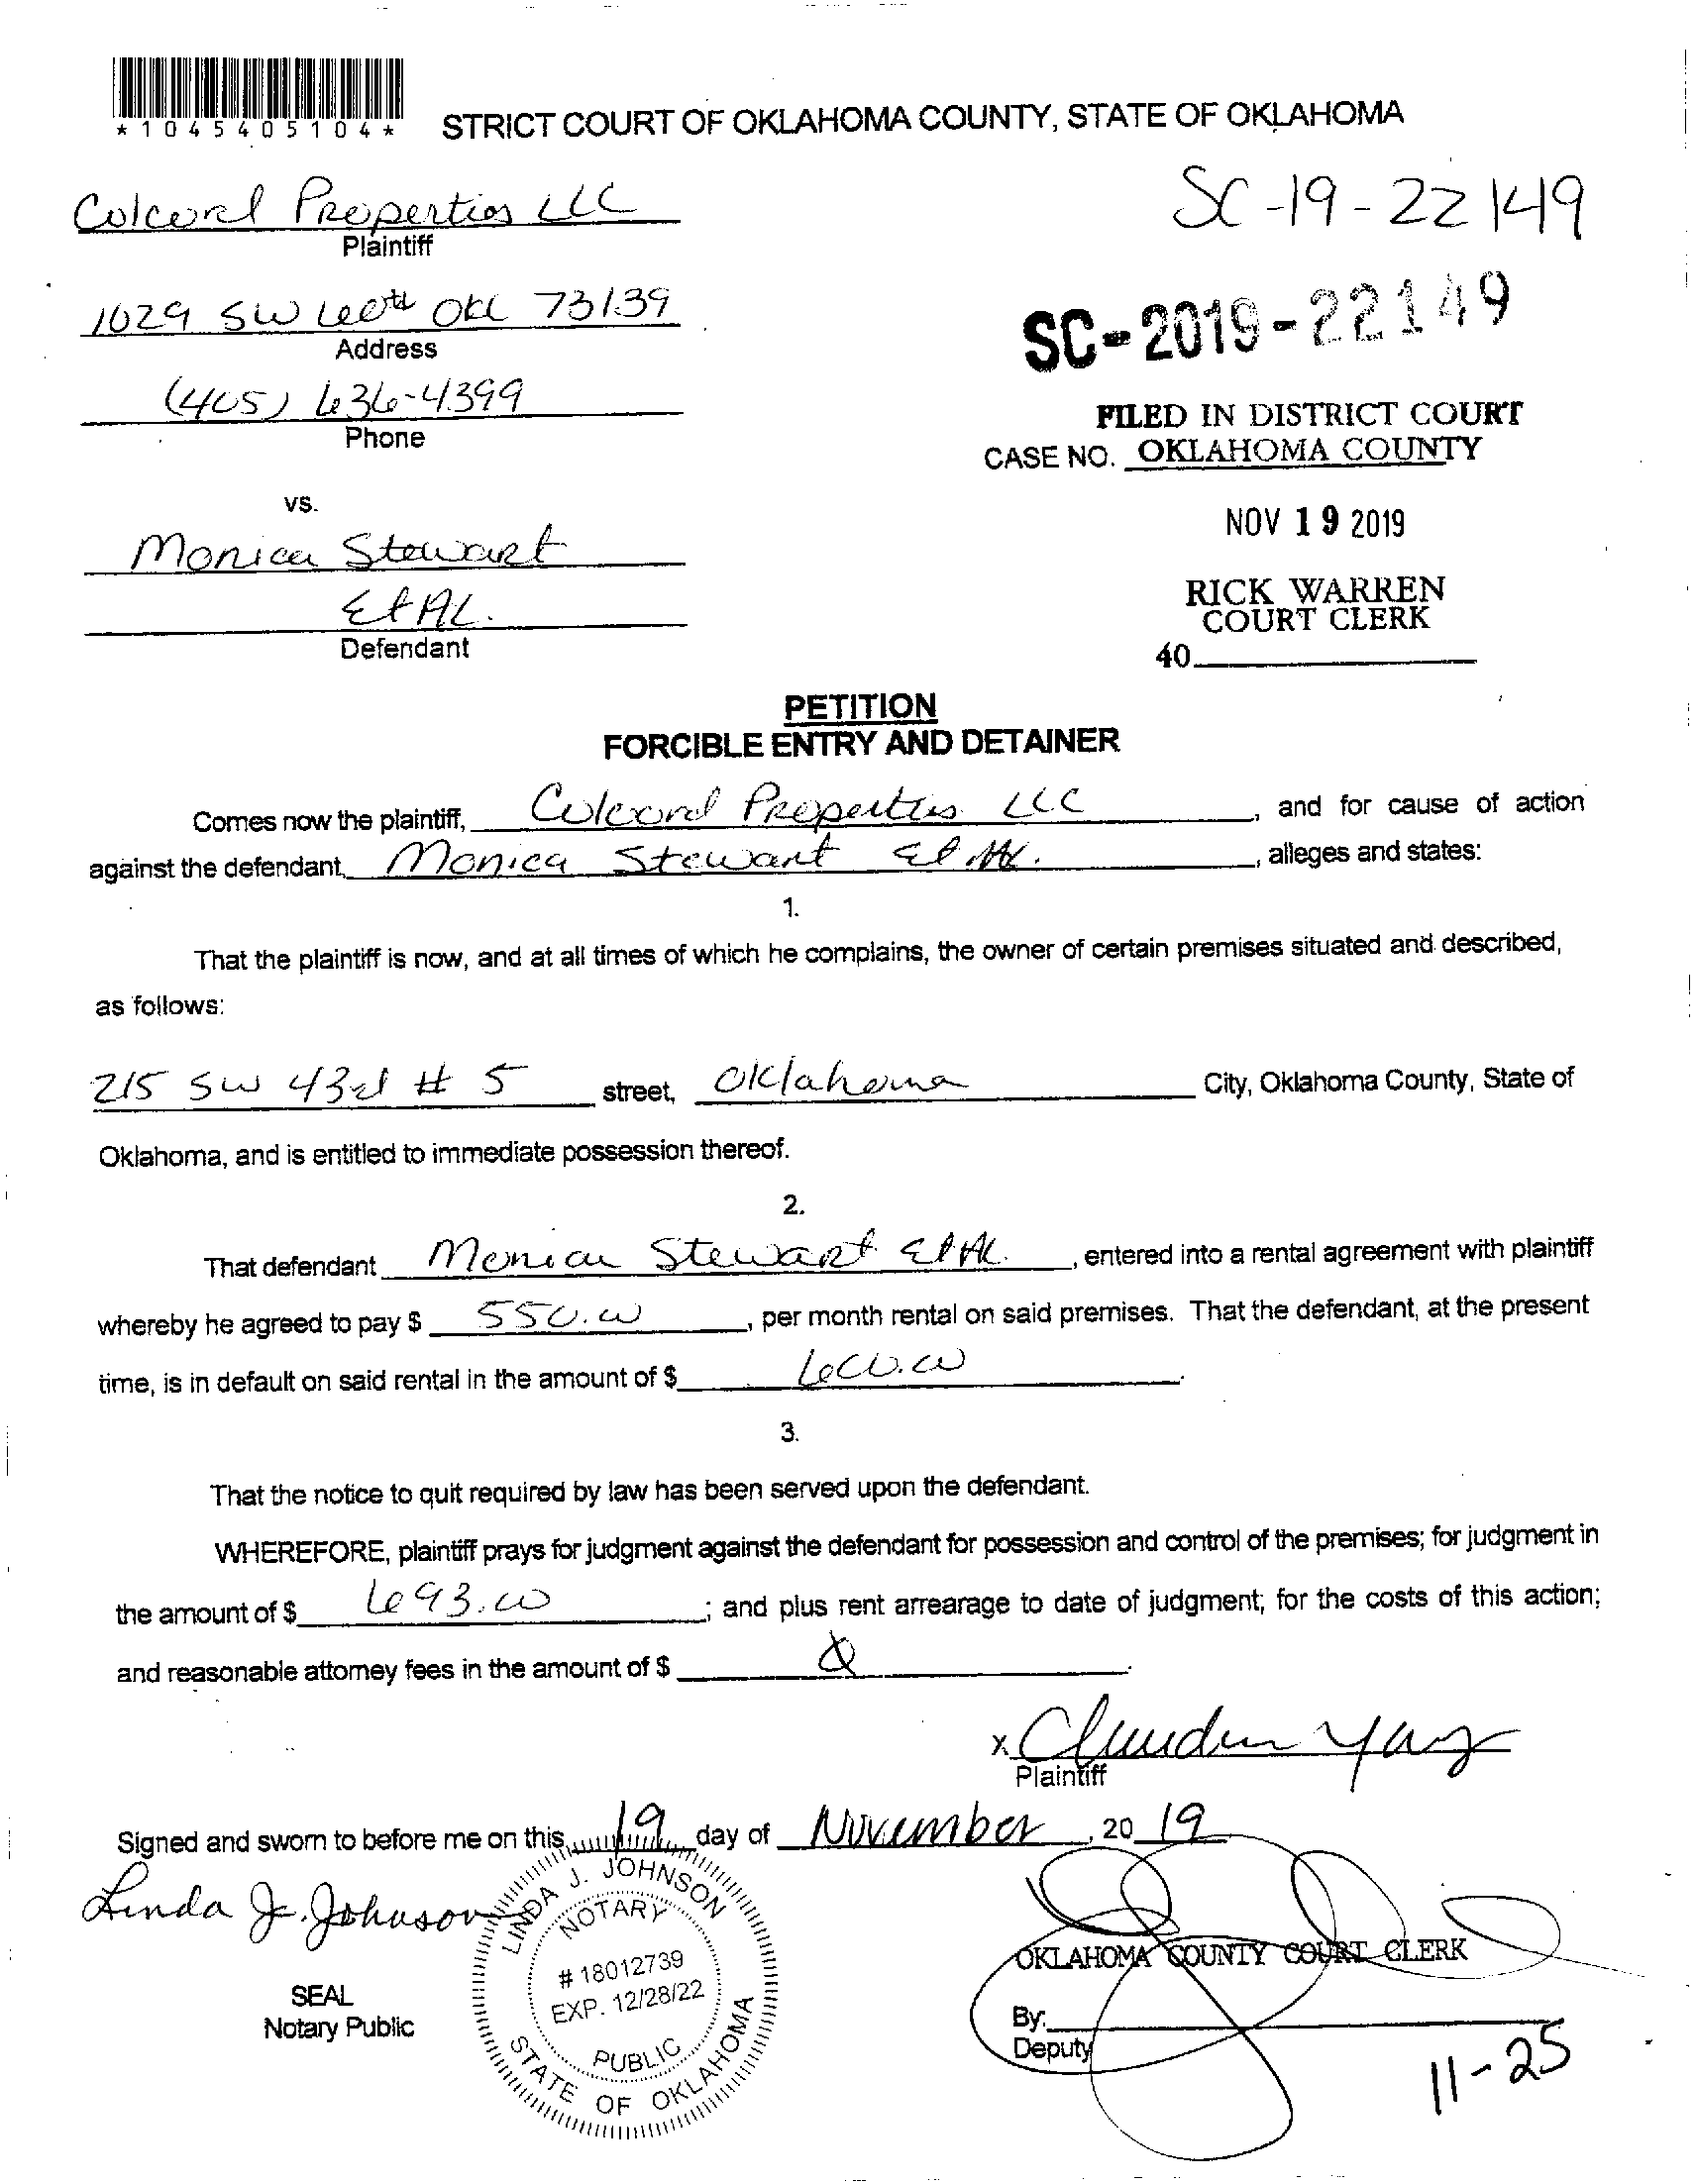 *1045405104*
STRICT COURT OF OKLAHOMA COUNTY, STATE OF OKLAHOMA
Colcord Properties LLC
Plaintiff
SC-19-22149
1029 SW 66th OKC 73139
Address
SC-2019-22149
(405) 636-4399
Phone
FILED IN DISTRICT COURT
CASE NO. OKLAHOMA COUNTY
vs.
NOV 19 2019
Monica Stewart
Et AL.
Defendant
RICK WARREN
COURT CLERK
40
PETITION
FORCIBLE ENTRY AND DETAINER
Comes now the plaintiff, Colcord Properties LLC, and for cause of action
against the defendant, Monica Stewart Et AL., alleges and states:
1.
That the plaintiff is now, and at all times of which he complains, the owner of certain premises situated and described,
as follows:
215 SW 43rd # 5 street, Oklahoma City, Oklahoma County, State of
Oklahoma, and is entitled to immediate possession thereof.
2.
That defendant Monica Stewart Et AL., entered into a rental agreement with plaintiff
whereby he agreed to pay $ 550.00, per month rental on said premises. That the defendant, at the present
time, is in default on said rental in the amount of $ 600.00.
3.
That the notice to quit required by law has been served upon the defendant.
WHEREFORE, plaintiff prays for judgment against the defendant for possession and control of the premises; for judgment in
the amount of $ 693.00; and plus rent arrearage to date of judgment; for the costs of this action;
and reasonable attorney fees in the amount of $
x
Plaintiff
Signed and sworn to before me on this 19 day of November, 20 19
Linda J. Johnson
LINDA J. JOHNSON
NOTARY
# 18012739
EXP. 12/28/22
PUBLIC
STATE OF OKLAHOMA
SEAL
Notary Public
OKLAHOMA COUNTY COURT CLERK
By:
Deputy
11-25